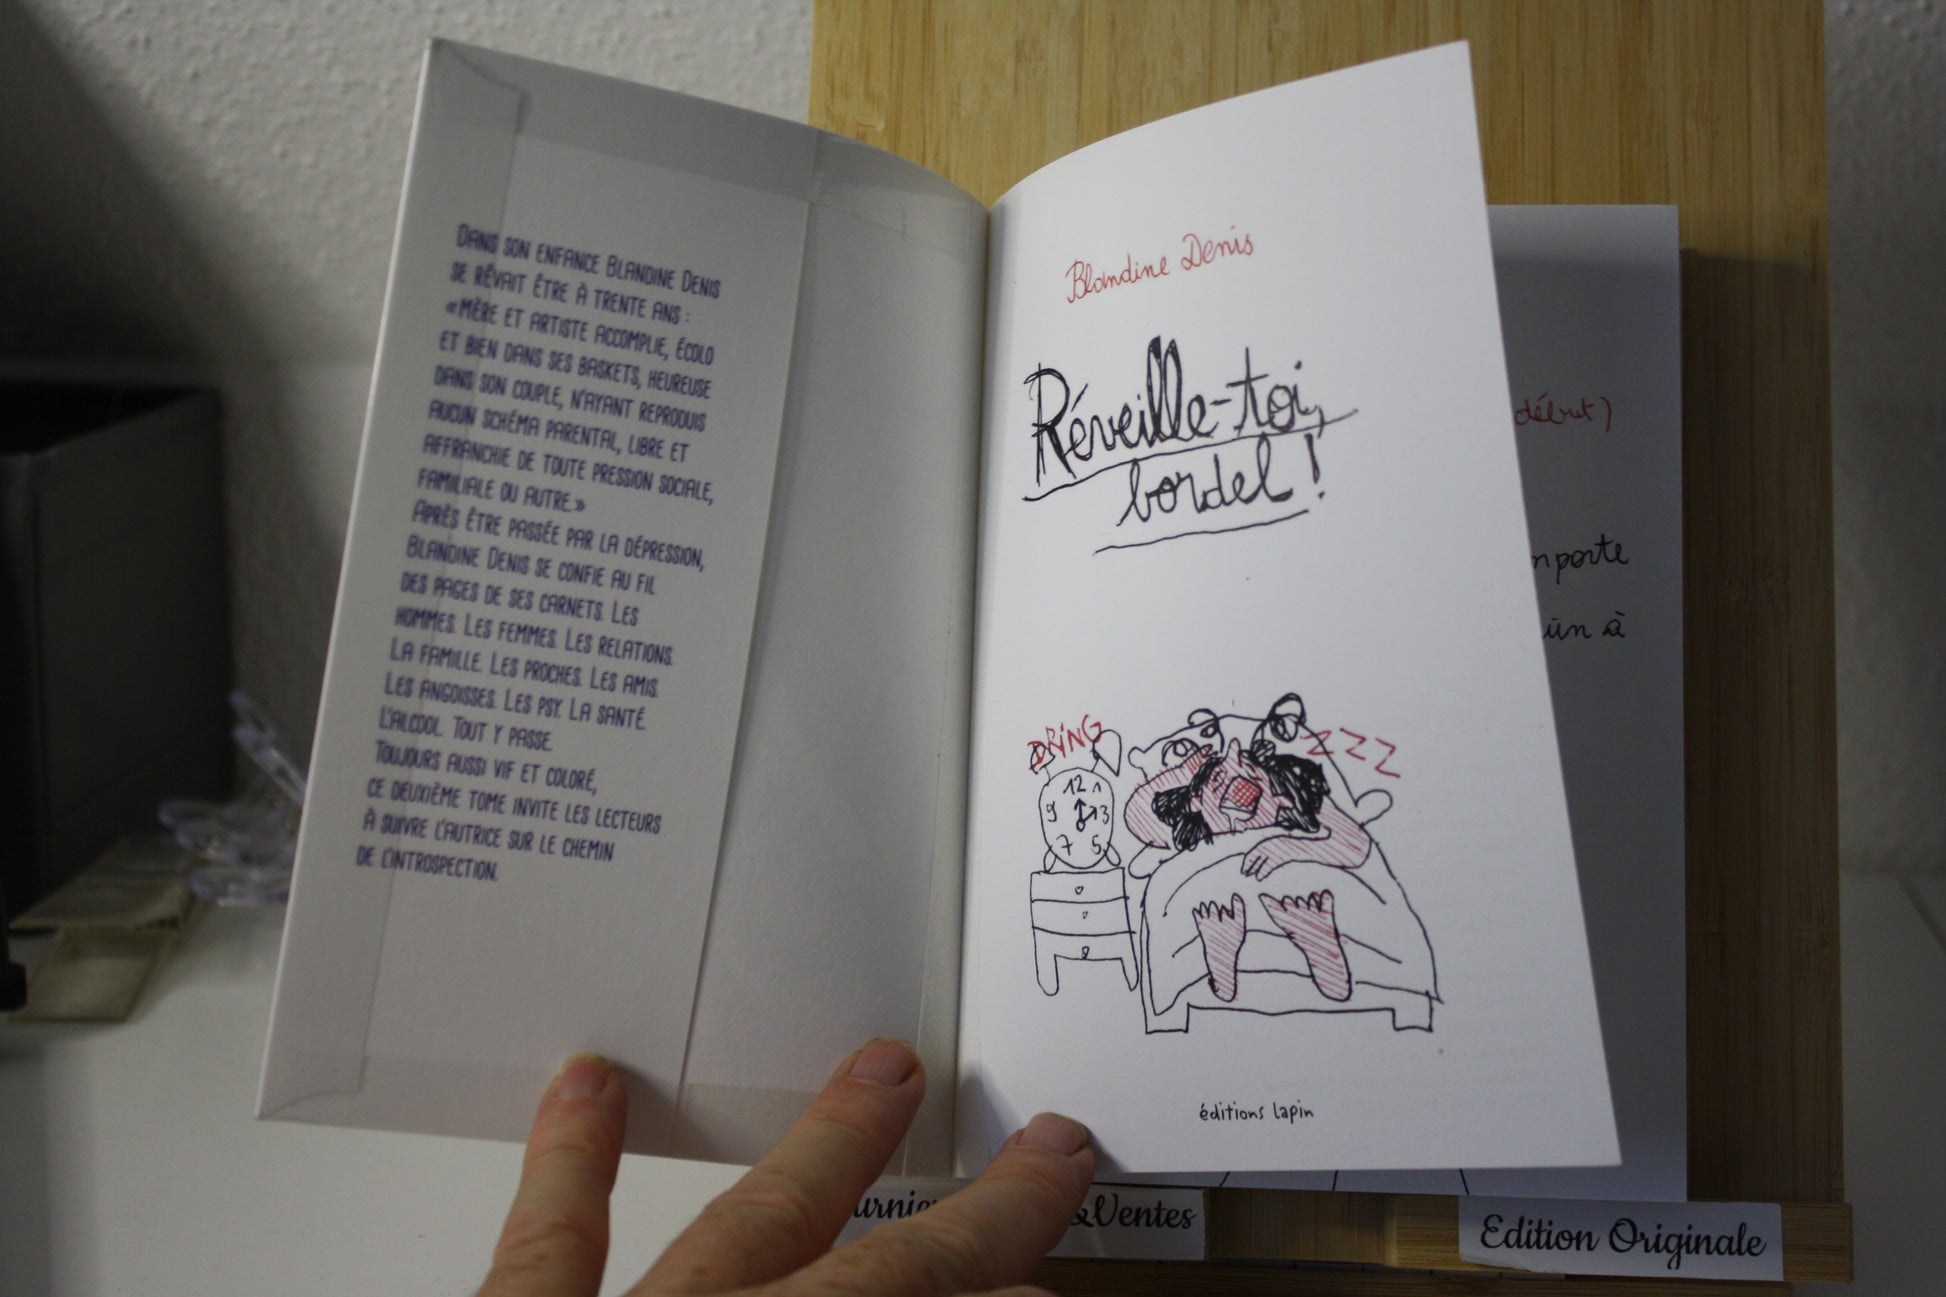 Dans son enfance Blandine Denis
se rêvait être à trente ans :
«Mère et artiste accomplie, écolo
et bien dans ses baskets, heureuse
dans son couple, n'ayant reproduis
aucun schéma parental, libre et
affranchie de toute pression sociale,
familiale ou autre.»
Après être passée par la dépression,
Blandine Denis se confie au fil
des pages de ses carnets. Les
hommes. Les femmes. Les relations.
La famille. Les proches. Les amis.
Les angoisses. Les psy. La santé.
L'alcool. Tout y passe.
Toujours aussi vif et coloré,
ce deuxième tome invite les lecteurs
à suivre l'autrice sur le chemin
de l'introspection.
Blandine Denis
Réveille-toi,
bordel !
DRiNG
ZZZ
12 1
9 3
7 5
éditions lapin
début)
porte
à
&Ventes
Edition Originale